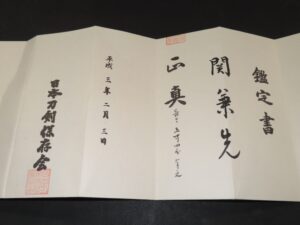 鑑定書
関兼先
正真
平成三年二月三日
日本刀剣保存会